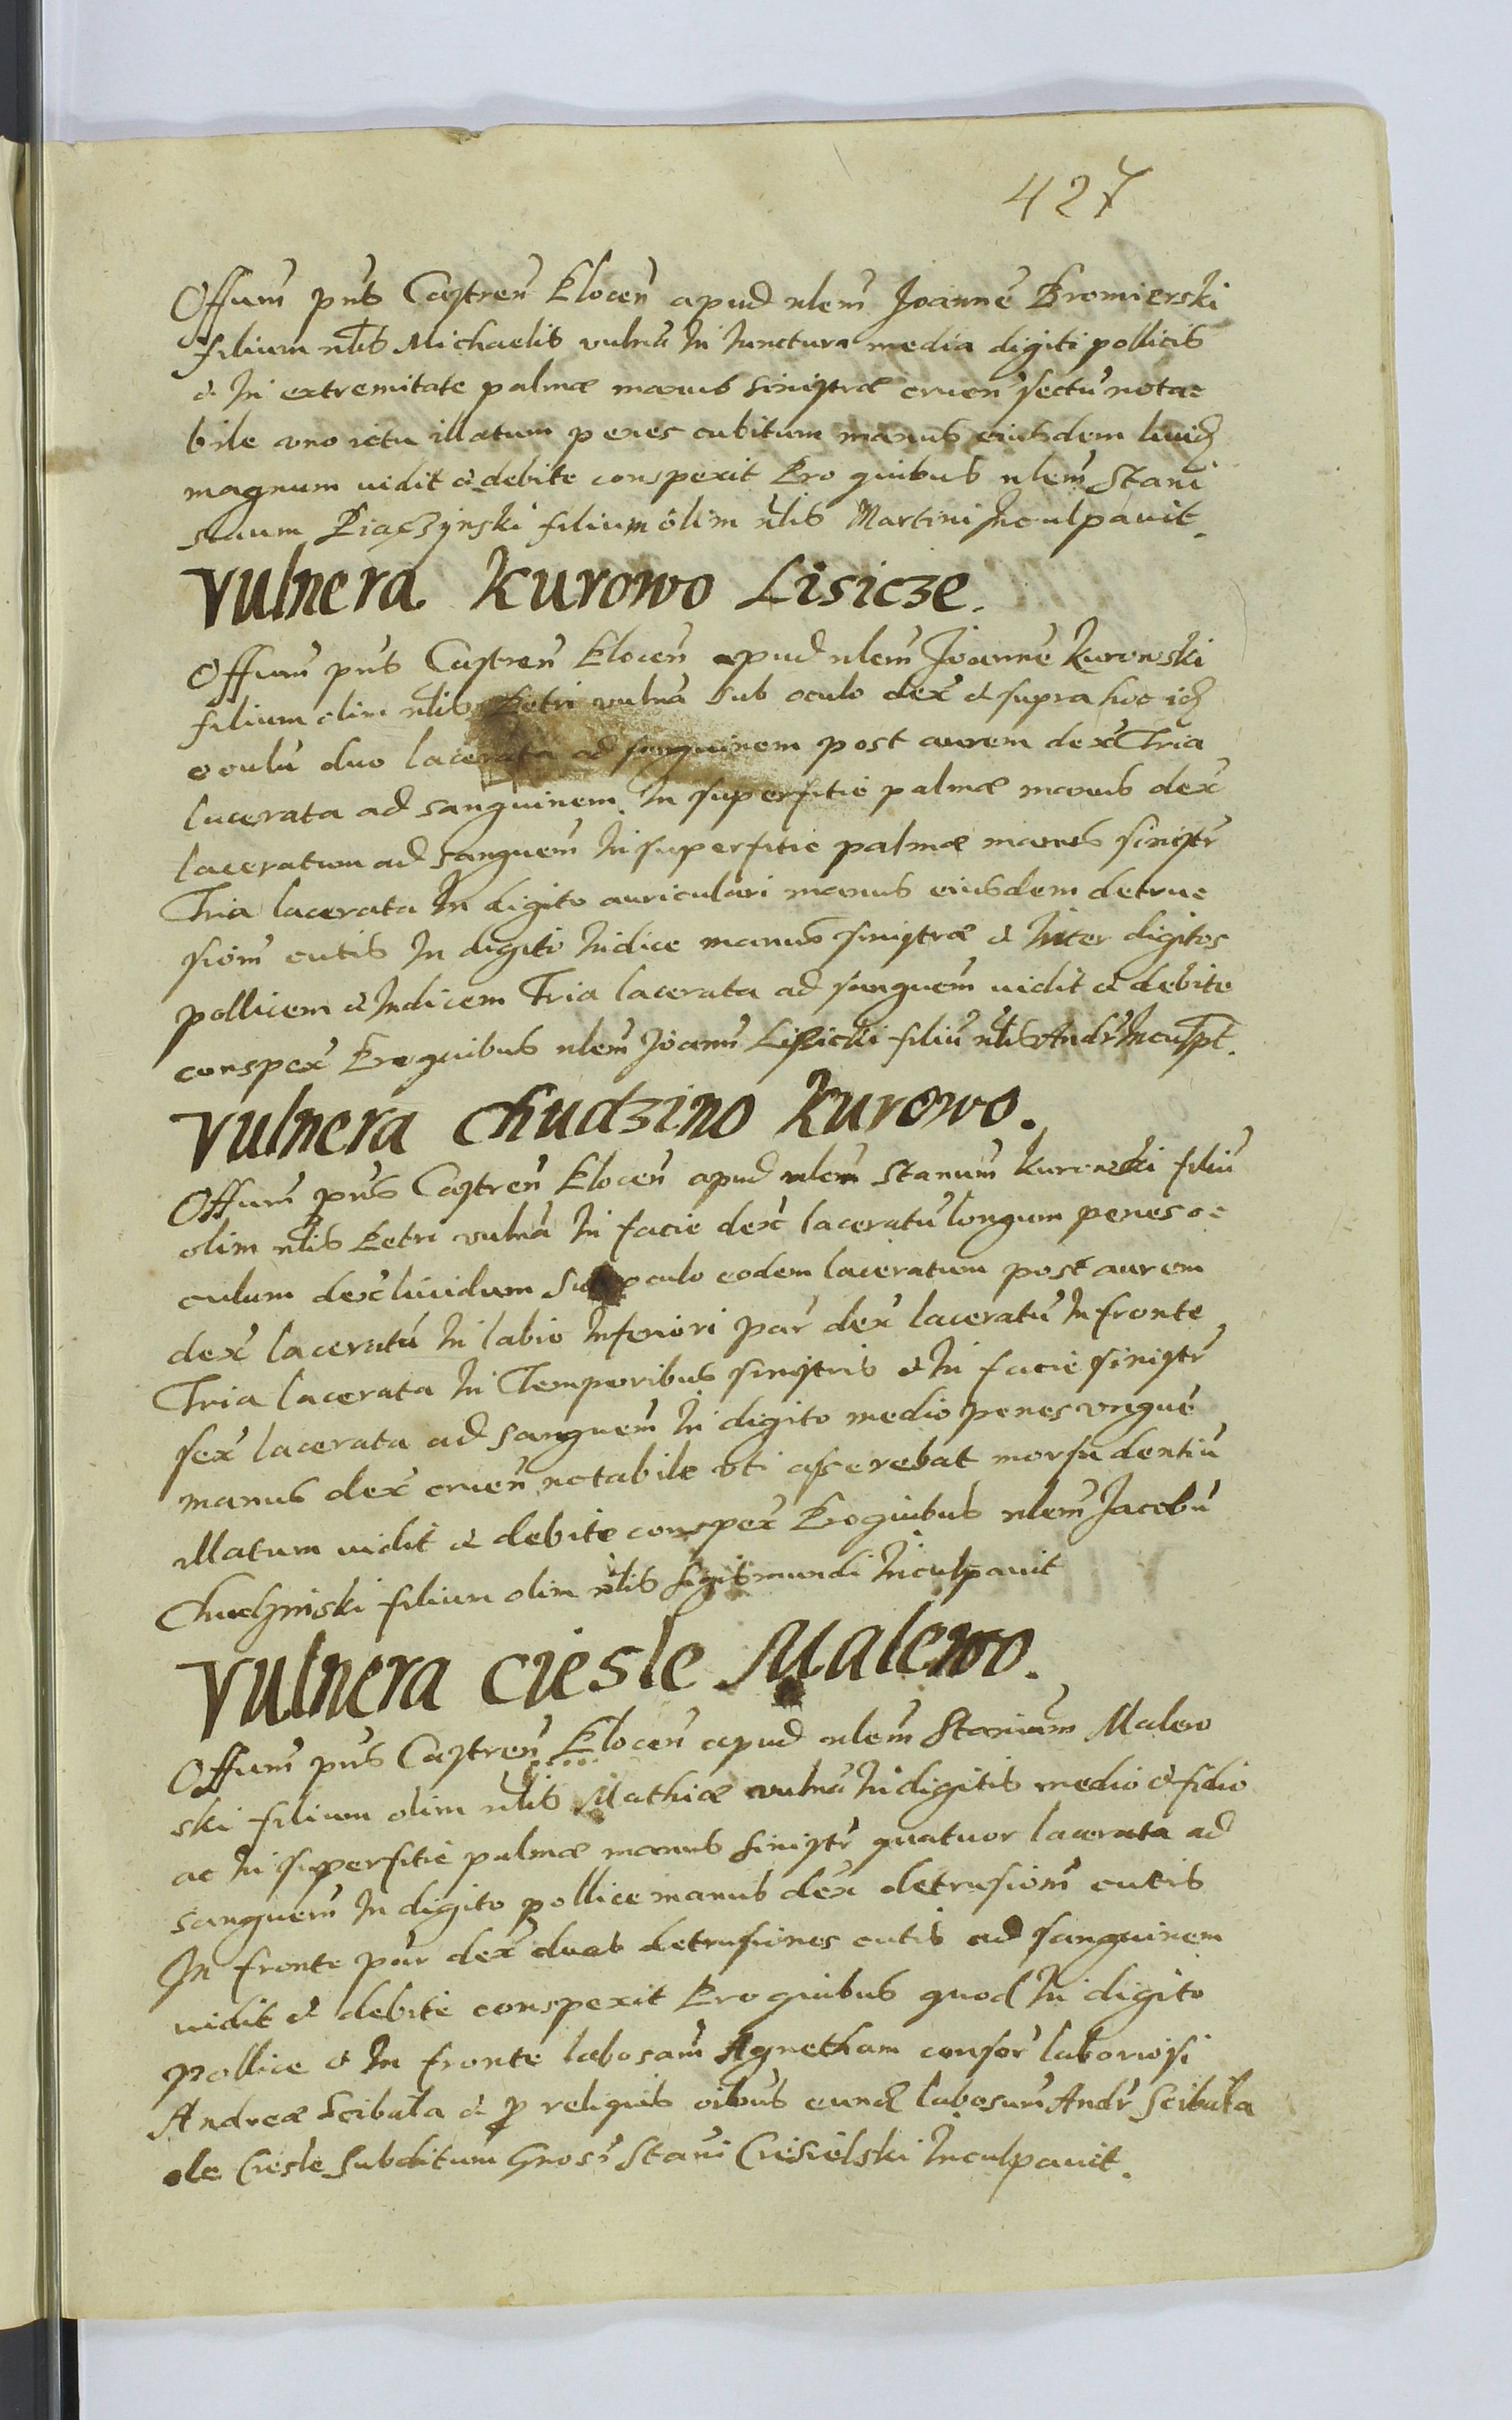 427
Offium pns Castren Plocen apud nlem Joanne Bromierski
filium nlis Michaelis vulna In Iunctura media digiti pollicis
& In extremitate palmæ manus sinistræ cruen sectu nota=
bile vno ictu illatum penes cubitum manus eiusdem liuid
magnum uidit & debite conspexit Pro quibus nlem Stani
slaum filium olim nlis Martini Inculpauit.
Vulnera Kurowo Lisicze.
Offium pns Castren Plocen apud nlem Joanne Kurowski
filium olim nlis Petri vulna sub oculo dex & supra hoc id
oculu duo lacerata ad sanguinem post aurem dex Tria
lacerata ad sanguinem In superfitie palmæ manus dex
laceratum ad sanguem In superfitie palmæ manus sinistr
Tria lacerata In digito auriculari manus eiusdem detru=
siom cutis In digito Indice manus sinistræ & Inter digitos
pollicem & Indicem Tria lacerata ad sanguem uidit & debite
conspex Pro quibus nlem Joann Lisicki filiu nlis Andr Inculpt.
Vulnera Chudzino Kurowo.
Offium pns Castren Plocen apud nlem Stanum Kurowski filiu
olim nlis Petri vulna In facie dex laceratu longum penes o=
culum dex liuidum sub oculo eodem laceratum post aurem
dex laceratu In labio Inferiori par dex laceratu In fronte
Tria lacerata In Temporibus sinistris & In facie sinistr
sex lacerata ad sanguem In digito medio penes vngue
manus dex cruen notabile vti asserebat morsu dentiu
illatum uidit & debite conspex Pro quibus nlem Jacobu
Chudzinski filium olim nlis Sigismundi Inculpauit
Vulnera Ciesle Malewo.
Offium pns Castren Plocen apud nlem Stanium Malew
ski filium olim nlis Mathiæ vulna In digitis medio & fidio
ac In superfitie palmæ manus sinistr quatuor lacerata ad
sanguem In digito pollice manus dex detrusiom cutis
In fronte par dex duas detrusiones cutis ad sanguinem
uidit & debite conspexit Pro quibus quod In digito
pollice & In fronte labosam Agnetham consor laboriosi
Andreæ Scibula & p reliquis oibus eund labosum Andr Scibula
de Ciesle subditum Gnosi Stani Ciesielski Inculpauit.